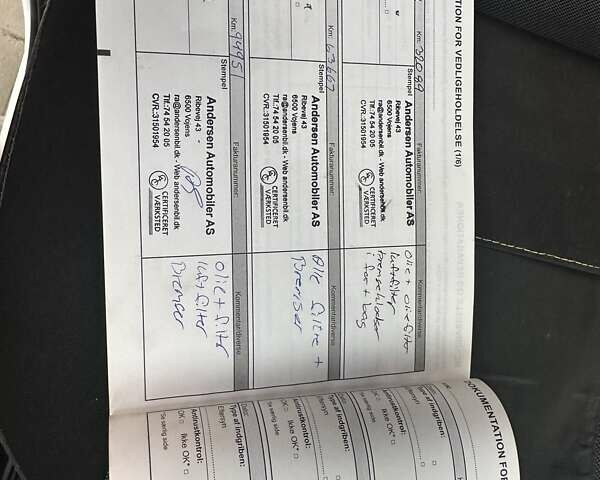 TION FOR VEDLIGEHOLDELSE (1/6)
Km: 32099
Stempel
Fakturanummer:
Kommentar/diverse
Andersen Automobiler AS
Ribevej 43
6500 Vojens
Tlf.:74 54 20 05
ra@andersenbil.dk - Web andersenbil.dk
CVR.:31501954
CERTIFICERET
VÆRKSTED
Olie + oliefilter
luftfilter
Bremseklodser
i for + bag
Km: 63667
Stempel
Fakturanummer:
Kommentar/diverse
Andersen Automobiler AS
Ribevej 43
6500 Vojens
ra@andersenbil.dk - Web andersenbil.dk
Tlf.:74 54 20 05
CVR.:31501954
CERTIFICERET
VÆRKSTED
Alle filtre +
Bremser
Km:
Stempel
Fakturanummer:
Kommentar/diverse
Andersen Automobiler AS
Ribevej 43
6500 Vojens
ra@andersenbil.dk - Web andersenbil.dk
Tlf.:74 54 20 05
CVR.:31501954
CERTIFICERET
VÆRKSTED
Olie + filter
luftfilter
Bremser
DOKUMENTATION FOR
Type af indgriben:
Eftersyn
Antirustkontrol:
OK
Ikke OK*
*Se særlig side
Dato:
Type af indgriben:
Eftersyn
Antirustkontrol:
OK
Ikke OK*
*Se særlig side
Dato:
Type af indgriben:
Eftersyn
Antirustkontrol:
OK
Ikke OK*
*Se særlig side